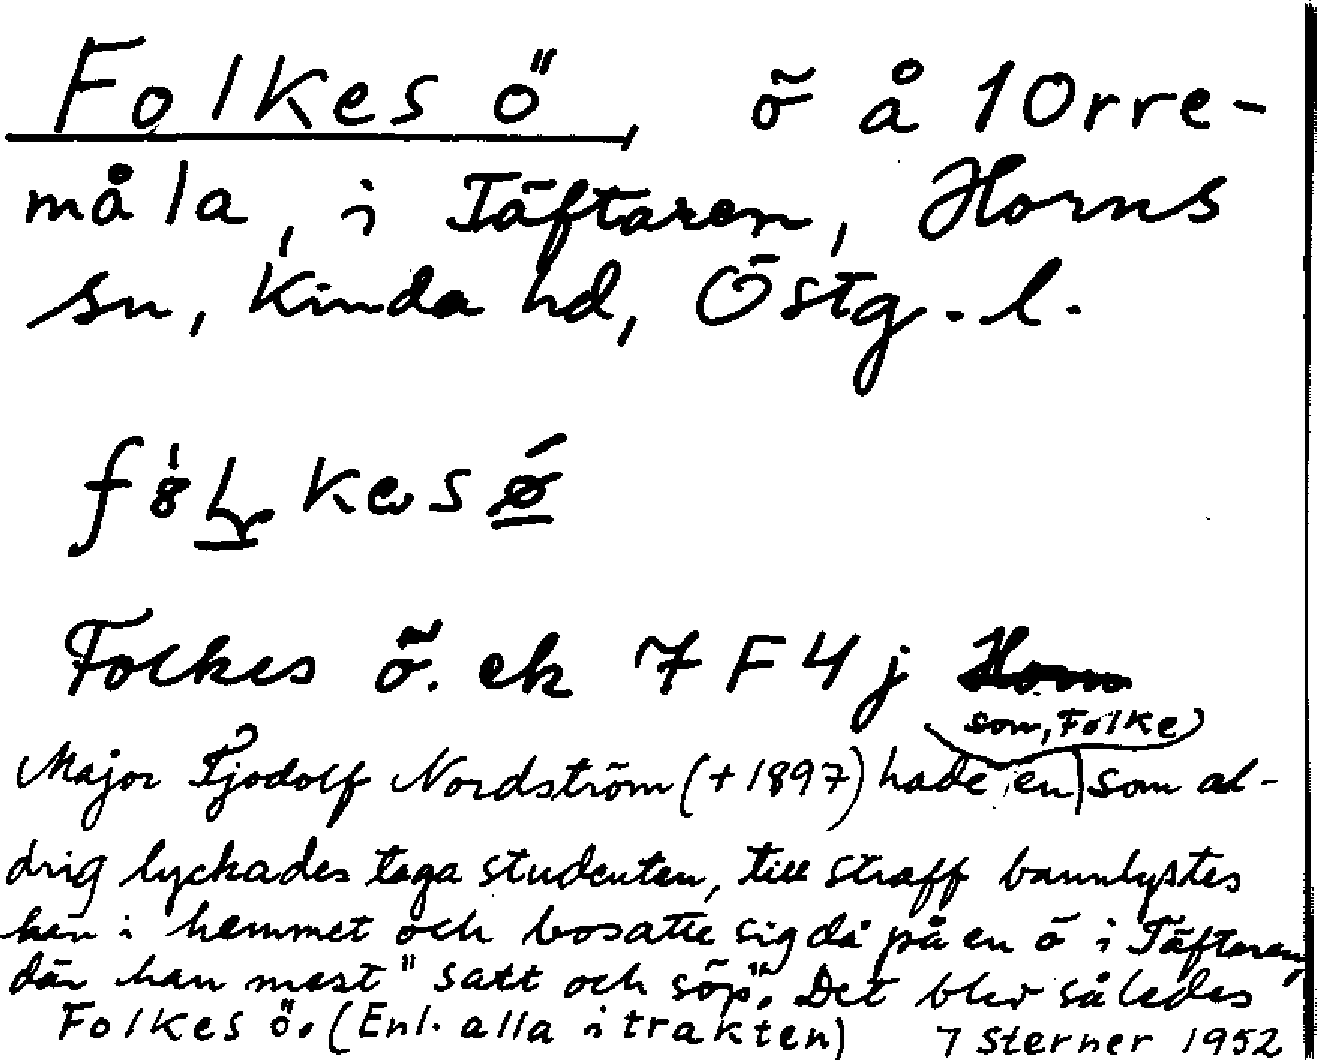 Folkes ö, ö å 1 Orre-
måla, i Täftaren, Horns
sn, Kinda hd, Östg. l.
Folkes ö. ek 7 F 4 j
son, Folke
Major Tjodolf Nordström (+1897) hade en som al-
drig lyckades taga studenten, till straff bannlystes
han i hemmet och bosatte sig då på en ö i Täftaren,
där han mest "satt och söp". Det blev således
Folkes ö. (Enl. alla i trakten) 7 Sterner 1952